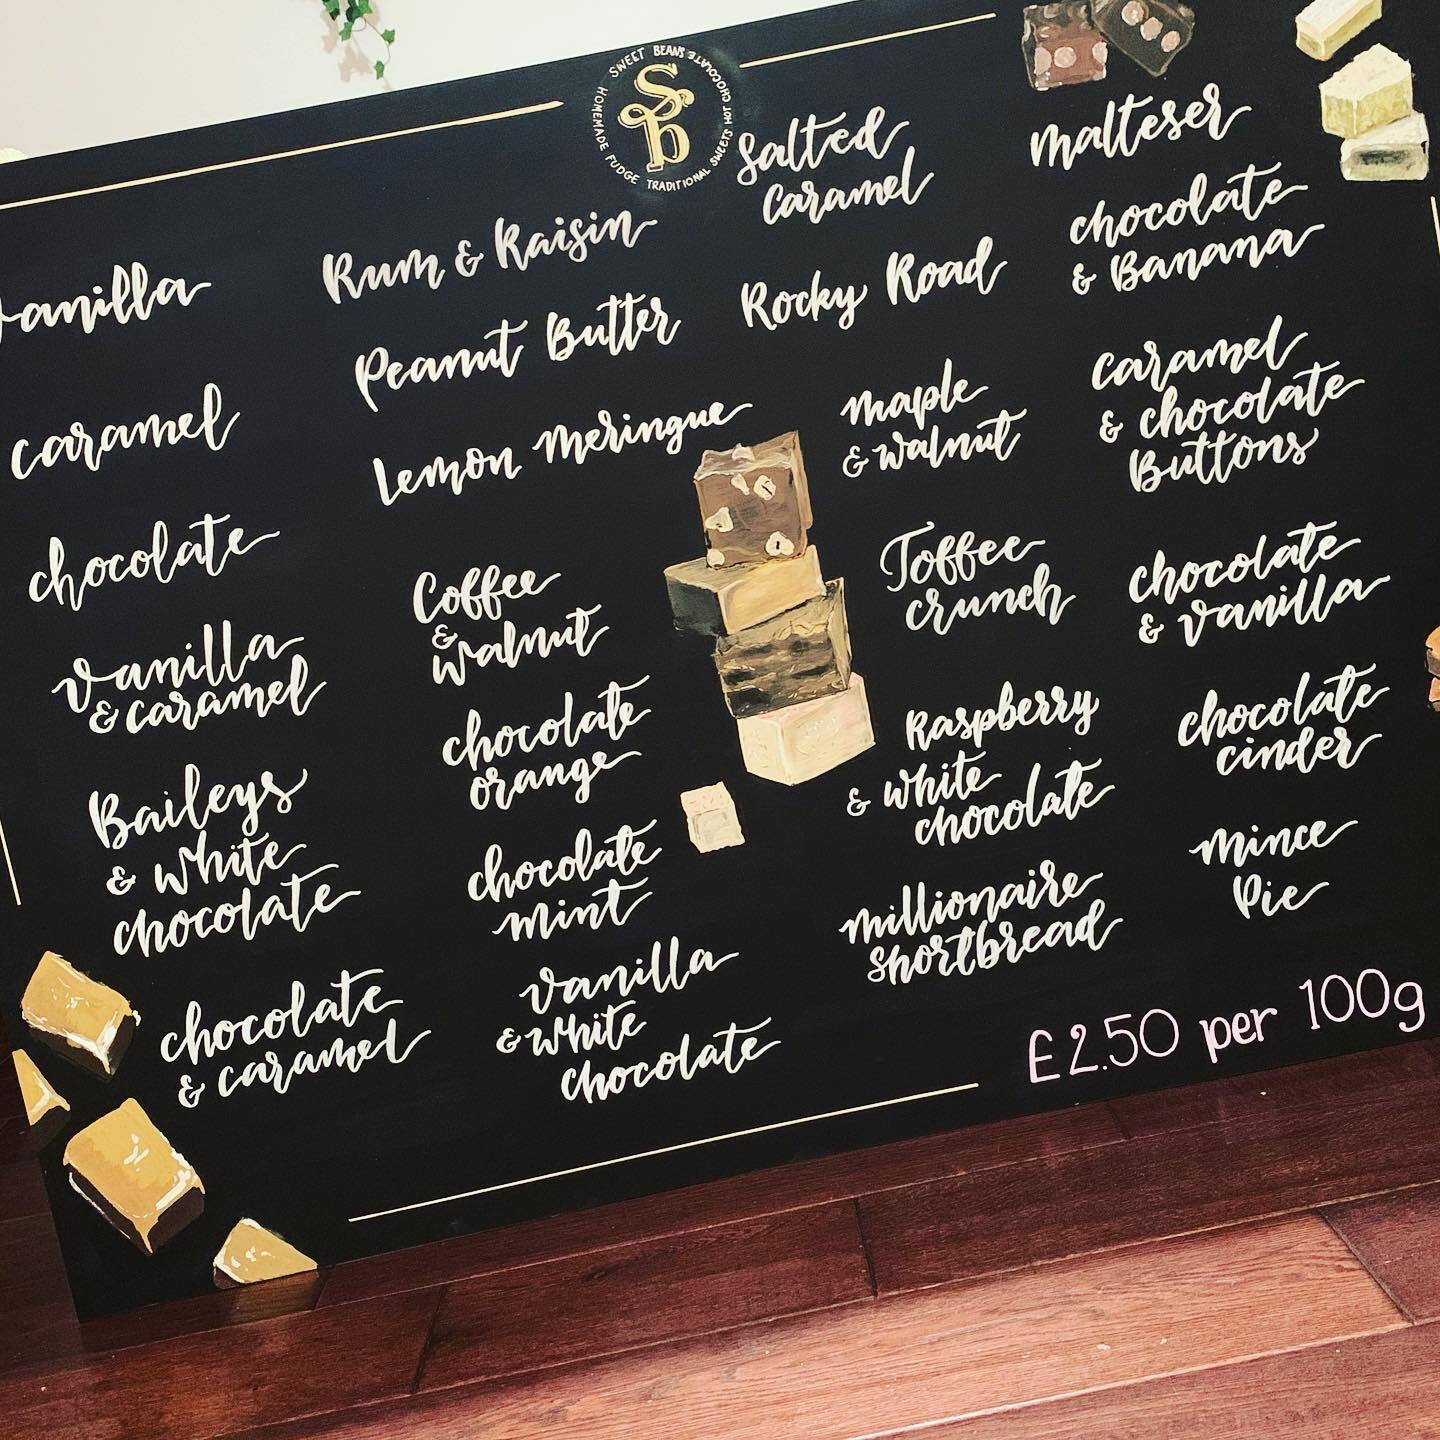 SWEET BEANS
HOMEMADE FUDGE TRADITIONAL SWEETS HOT CHOCOLATE
Sb
Vanilla
Caramel
Chocolate
Vanilla
& Caramel
Baileys
& White
Chocolate
Chocolate
& Caramel
Rum & Raisin
Peanut Butter
Lemon Meringue
Coffee
&
Walnut
Chocolate
Orange
Chocolate
Mint
Vanilla
& White
Chocolate
Salted
Caramel
Rocky Road
Maple
& Walnut
Toffee
Crunch
Raspberry
& White
Chocolate
Millionaire
Shortbread
Malteser
Chocolate
& Banana
Caramel
& Chocolate
Buttons
Chocolate
& Vanilla
Chocolate
Cinder
Mince
Pie
£2.50 per 100g